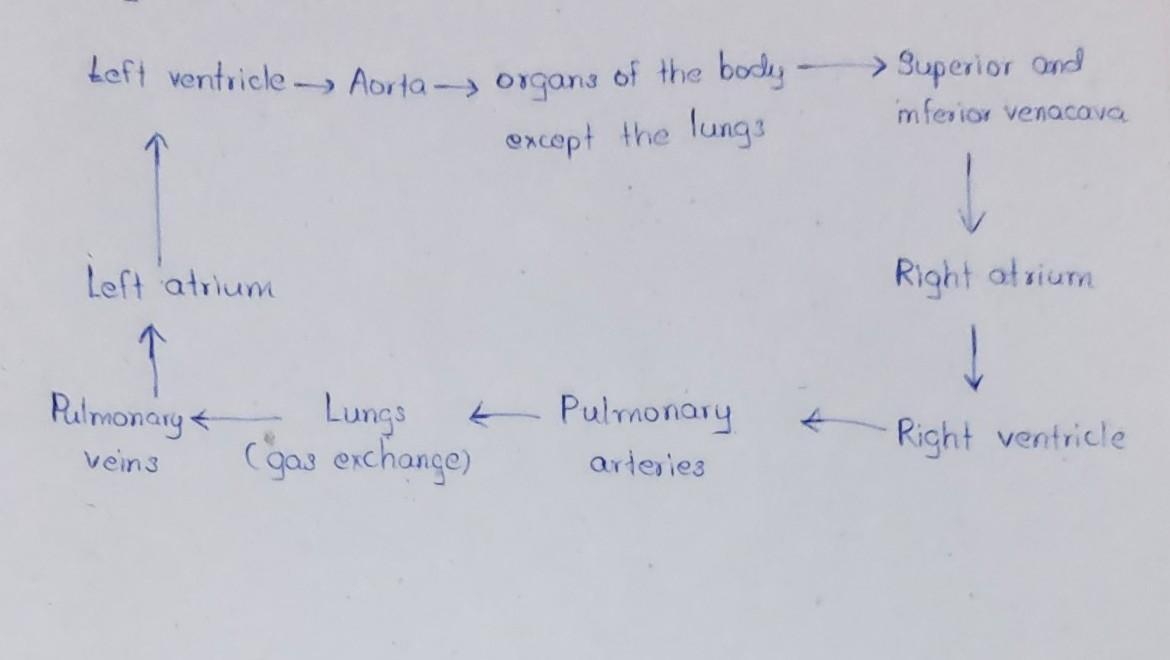 Left ventricle → Aorta → organs of the body → Superior and
except the lungs
inferior venacava
Left atrium
Right atrium
Pulmonary ← Lungs ← Pulmonary ← Right ventricle
veins
(gas exchange)
arteries